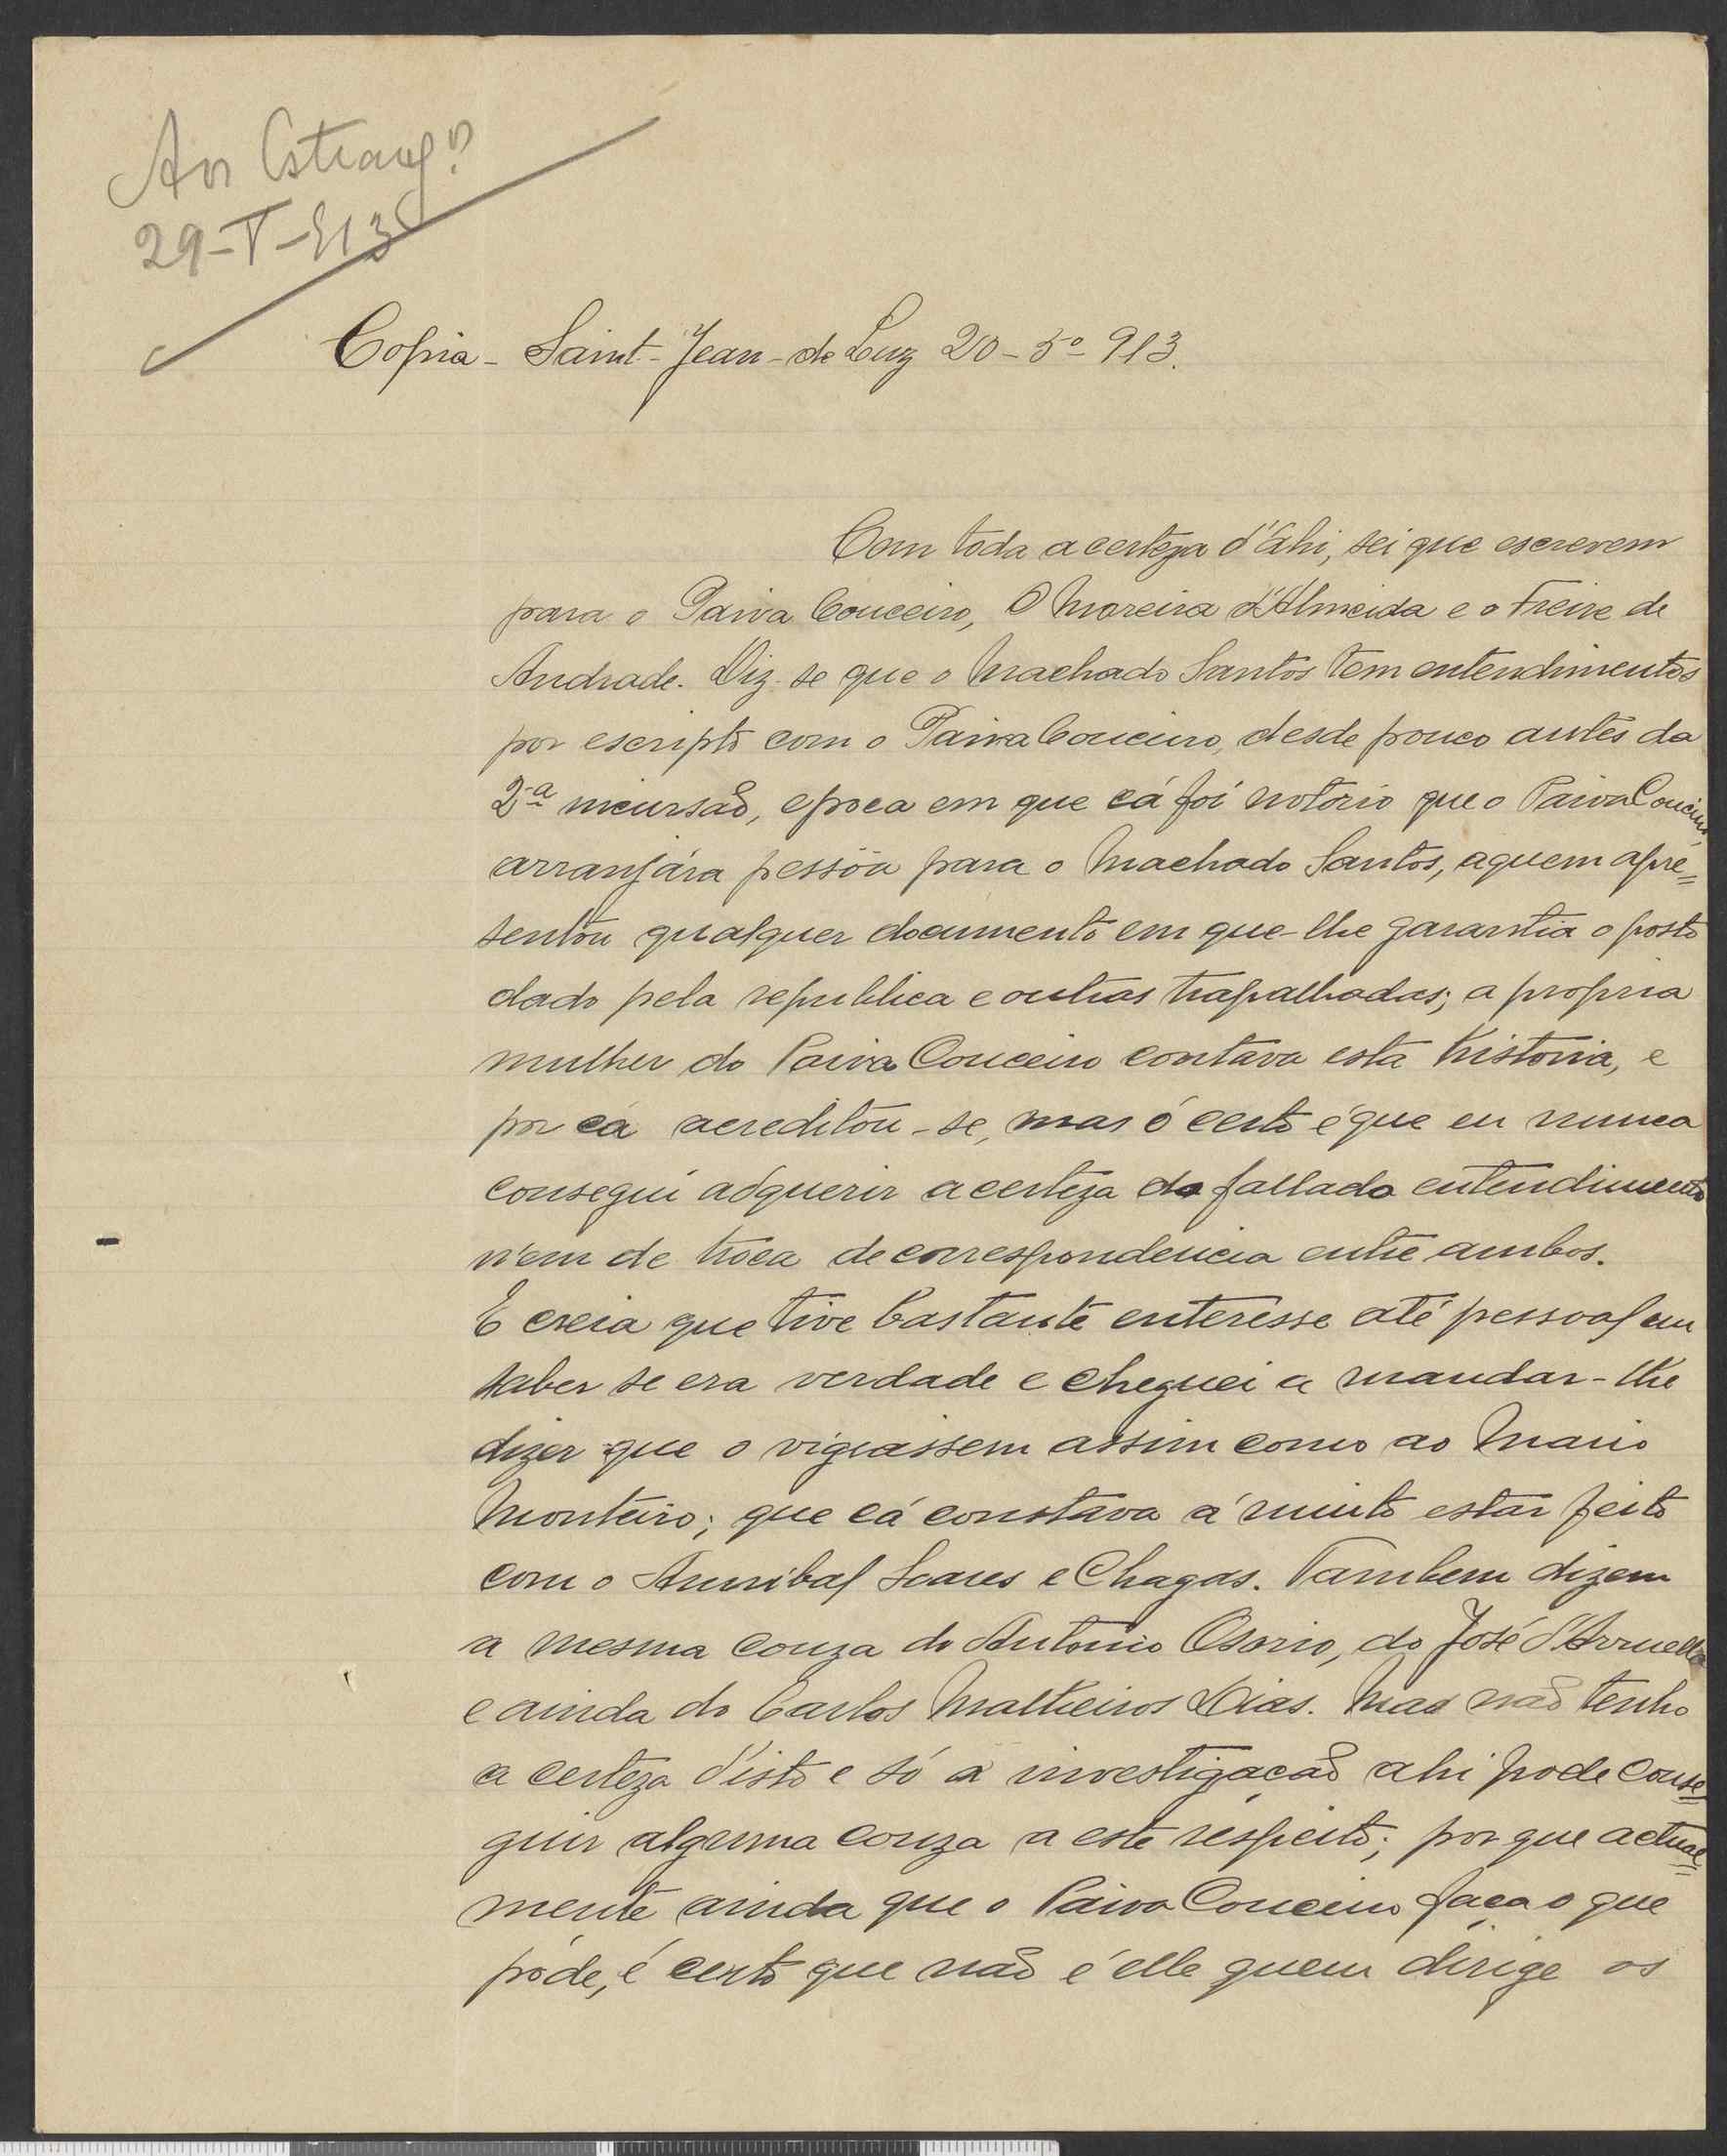 Aos Estrangº
29-V-913
Copia - Saint-Jean-de Luz 20-5º-913.
Com toda a certeza d'ahi, sei que escrevem
para o Paiva Couceiro, O Moreira d'Almeida e o Freire de
Andrade. Diz-se que o Machado Santos tem entendimentos
por escripto com o Paiva Couceiro, desde pouco antes da
2ª incursão, epoca em que cá foi notorio que o Paiva Couceiro,
arranjára pessôa para o Machado Santos, aquem apre=
sentou qualquer documento em que-lhe garantia o posto
dado pela republica e outras trapalhadas; a propria
mulher do Paiva Couceiro contava esta historia, e
por cá acreditou-se, mas o certo é que eu nunca
consegui adquerir a certeza do fallado entendimento
n'em de troca de correspondencia entre ambos.
E creia que tive bastante enteresse até pessoal em
saber se era verdade e cheguei a mandar-lhe
dizer que o vigiassem assim como ao Mario
Monteiro; que cá constava á muito estar feito
com o Annibal Soares e Chagas. Tambem dizem
a mesma couza do Antonio Osorio, do José d'Arruella
e ainda do Carlos Malheiros Dias. Mas não tenho
a certeza d'isto e só a investigação ahi pode conse=
guir alguma couza a este respeito; por que actual=
mente ainda que o Paiva Couceiro faça o que
póde, é certo que não é elle quem dirige os